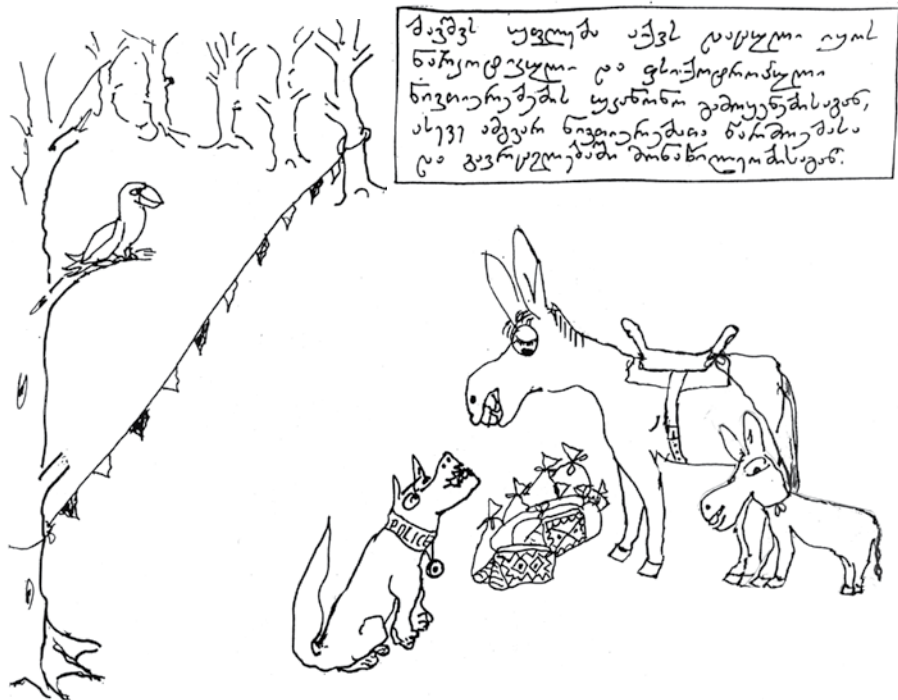 ბავშვს უფლება აქვს დაცული იყოს
ნარკოტიკული და ფსიქოტროპული
ნივთიერებების უკანონო გამოყენებისაგან,
ასევე ამგვარ ნივთიერებათა წარმოებასა
და გავრცელებაში მონაწილეობისაგან.
POLICE